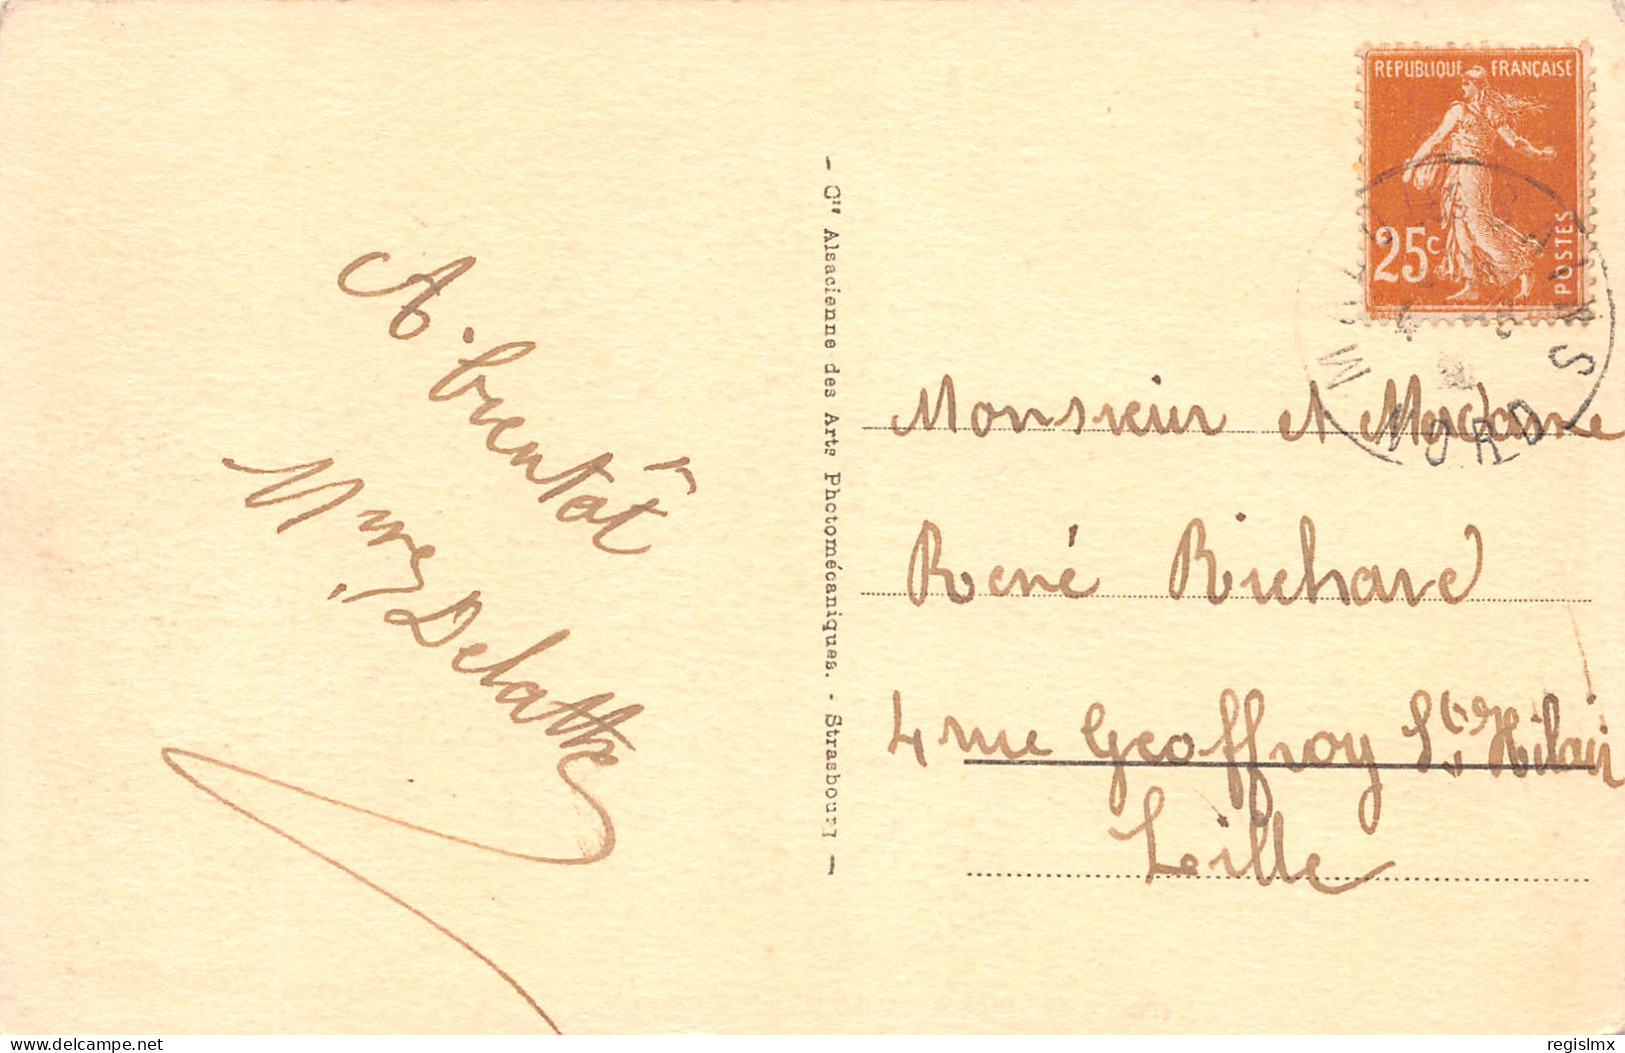 A. bientôt
Delattre
— Cie Alsacienne des Arts Photomécaniques. - Strasbourg —
REPUBLIQUE FRANÇAISE
25c
POSTES
NORD
Monsieur et Madame
René Richard
4 rue Geoffroy Ste Hilair
Lille
delcampe.net
regislmx